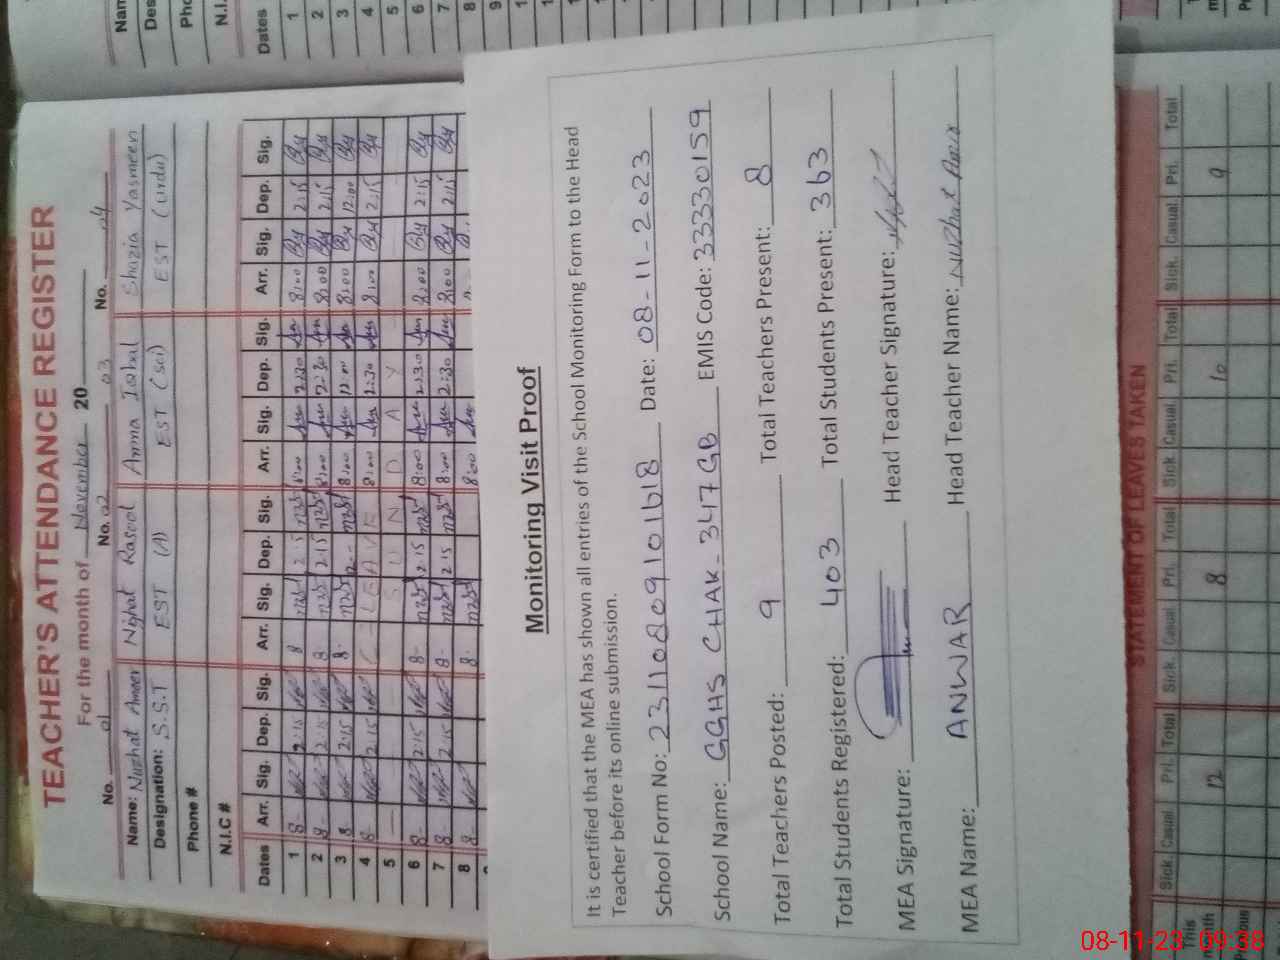 TEACHER'S ATTENDANCE REGISTER
For the month of November 20
No. 01 No. 02 No. 03 No. 04
Name: Nuzhat Ameer Nighat Rasool Amna Iqbal Shazia Yasmeen
Designation: S.S.T EST (A) EST (sci) EST (urdu)
Phone #
N.I.C #
Dates Arr. Sig. Dep. Sig. Arr. Sig. Dep. Sig. Arr. Sig. Dep. Sig. Arr. Sig. Dep. Sig.
1 8- 2:15 8 2:15 8:00 2:30 8:00 2:15
2 8- 2:15 8 2:15 8:00 2:30 8:00 2:15
3 8- 2:15 8- 12- 8:00 12:00 8:00 12:00
4 8- 2:15 LEAVE 8:00 2:30 8:00 2:15
5 SUNDAY
6 8- 2:15 8- 2:15 8:00 2:30 8:00 2:15
7 8- 2:15 8- 2:15 8:00 2:30 8:00 2:15
8 8- 8- 8:00
Monitoring Visit Proof
It is certified that the MEA has shown all entries of the School Monitoring Form to the Head
Teacher before its online submission.
School Form No: 23110809101618 Date: 08-11-2023
School Name: GGHS CHAK-347GB EMIS Code: 33330159
Total Teachers Posted: 9 Total Teachers Present: 8
Total Students Registered: 403 Total Students Present: 363
MEA Signature: Head Teacher Signature:
MEA Name: ANWAR Head Teacher Name: Nuzhat
STATEMENT OF LEAVES TAKEN
Sick. Casual Pri. Total Sick. Casual Pri. Total Sick Casual Pri. Total Sick. Casual Pri. Total
This month 12 8 10 9
Dates
1
2
3
4
5
6
7
8
9
08-11-23 09:38